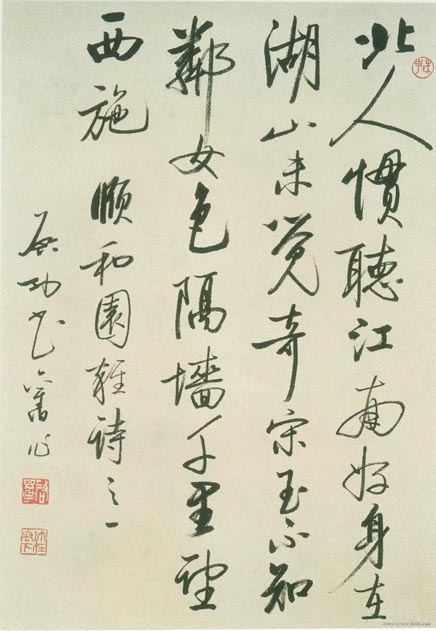 北人惯聽江南好身在
湖山未覺奇宋玉不知
鄰女色隔墻千里望
西施 頤和園雜诗之一
啟功書舊作